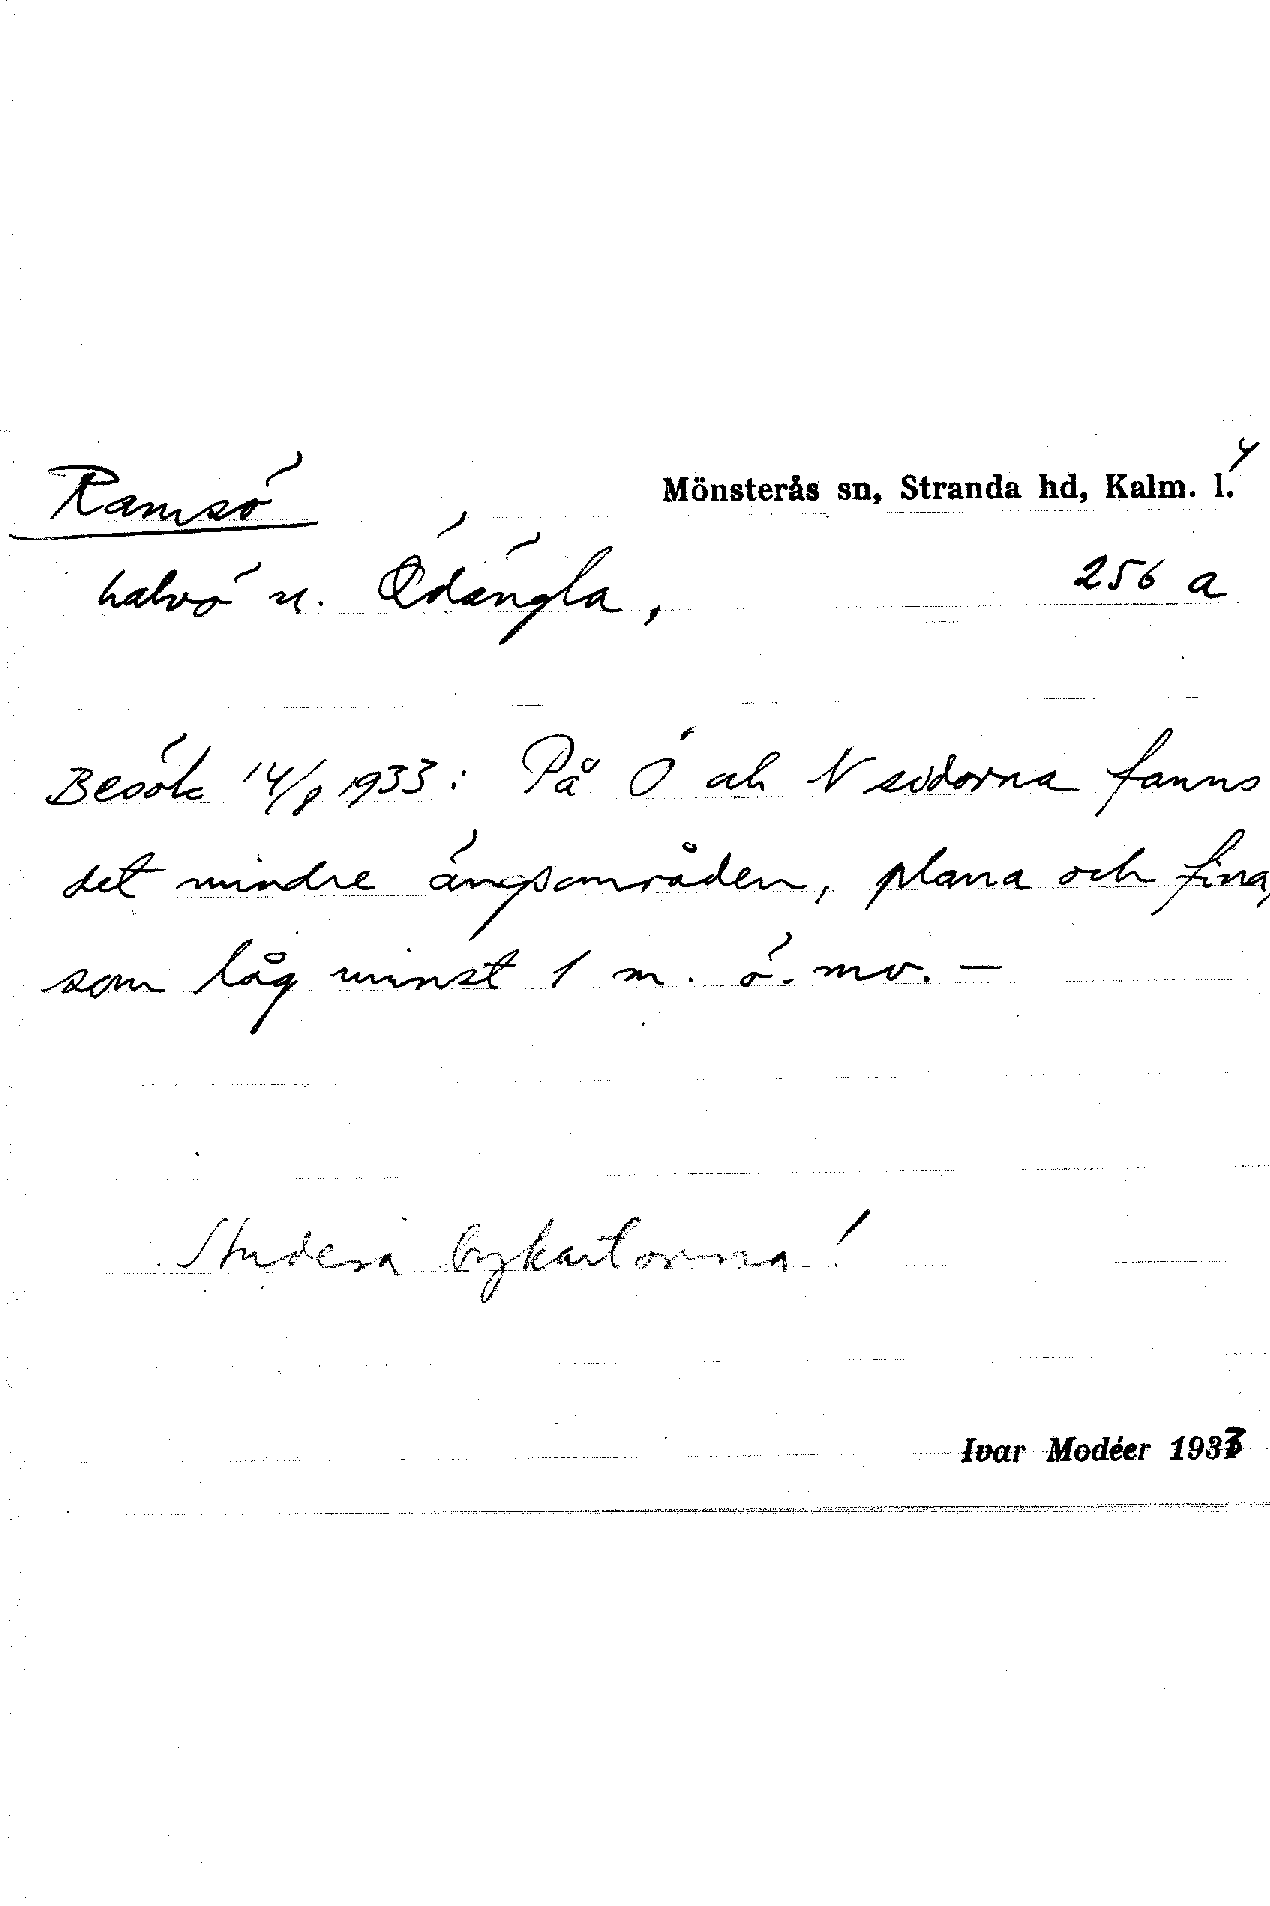 Ramsö
Mönsterås sn, Stranda hd, Kalm. l. 4
halvö u. Ödängla,
256 a
Besök 14/8 1933: På Ö och N sidorna fanns
det mindre ängsområden, plana och fina,
som låg minst 1 m. ö. mv. —
Studera bykartorna!
Ivar Modéer 1933